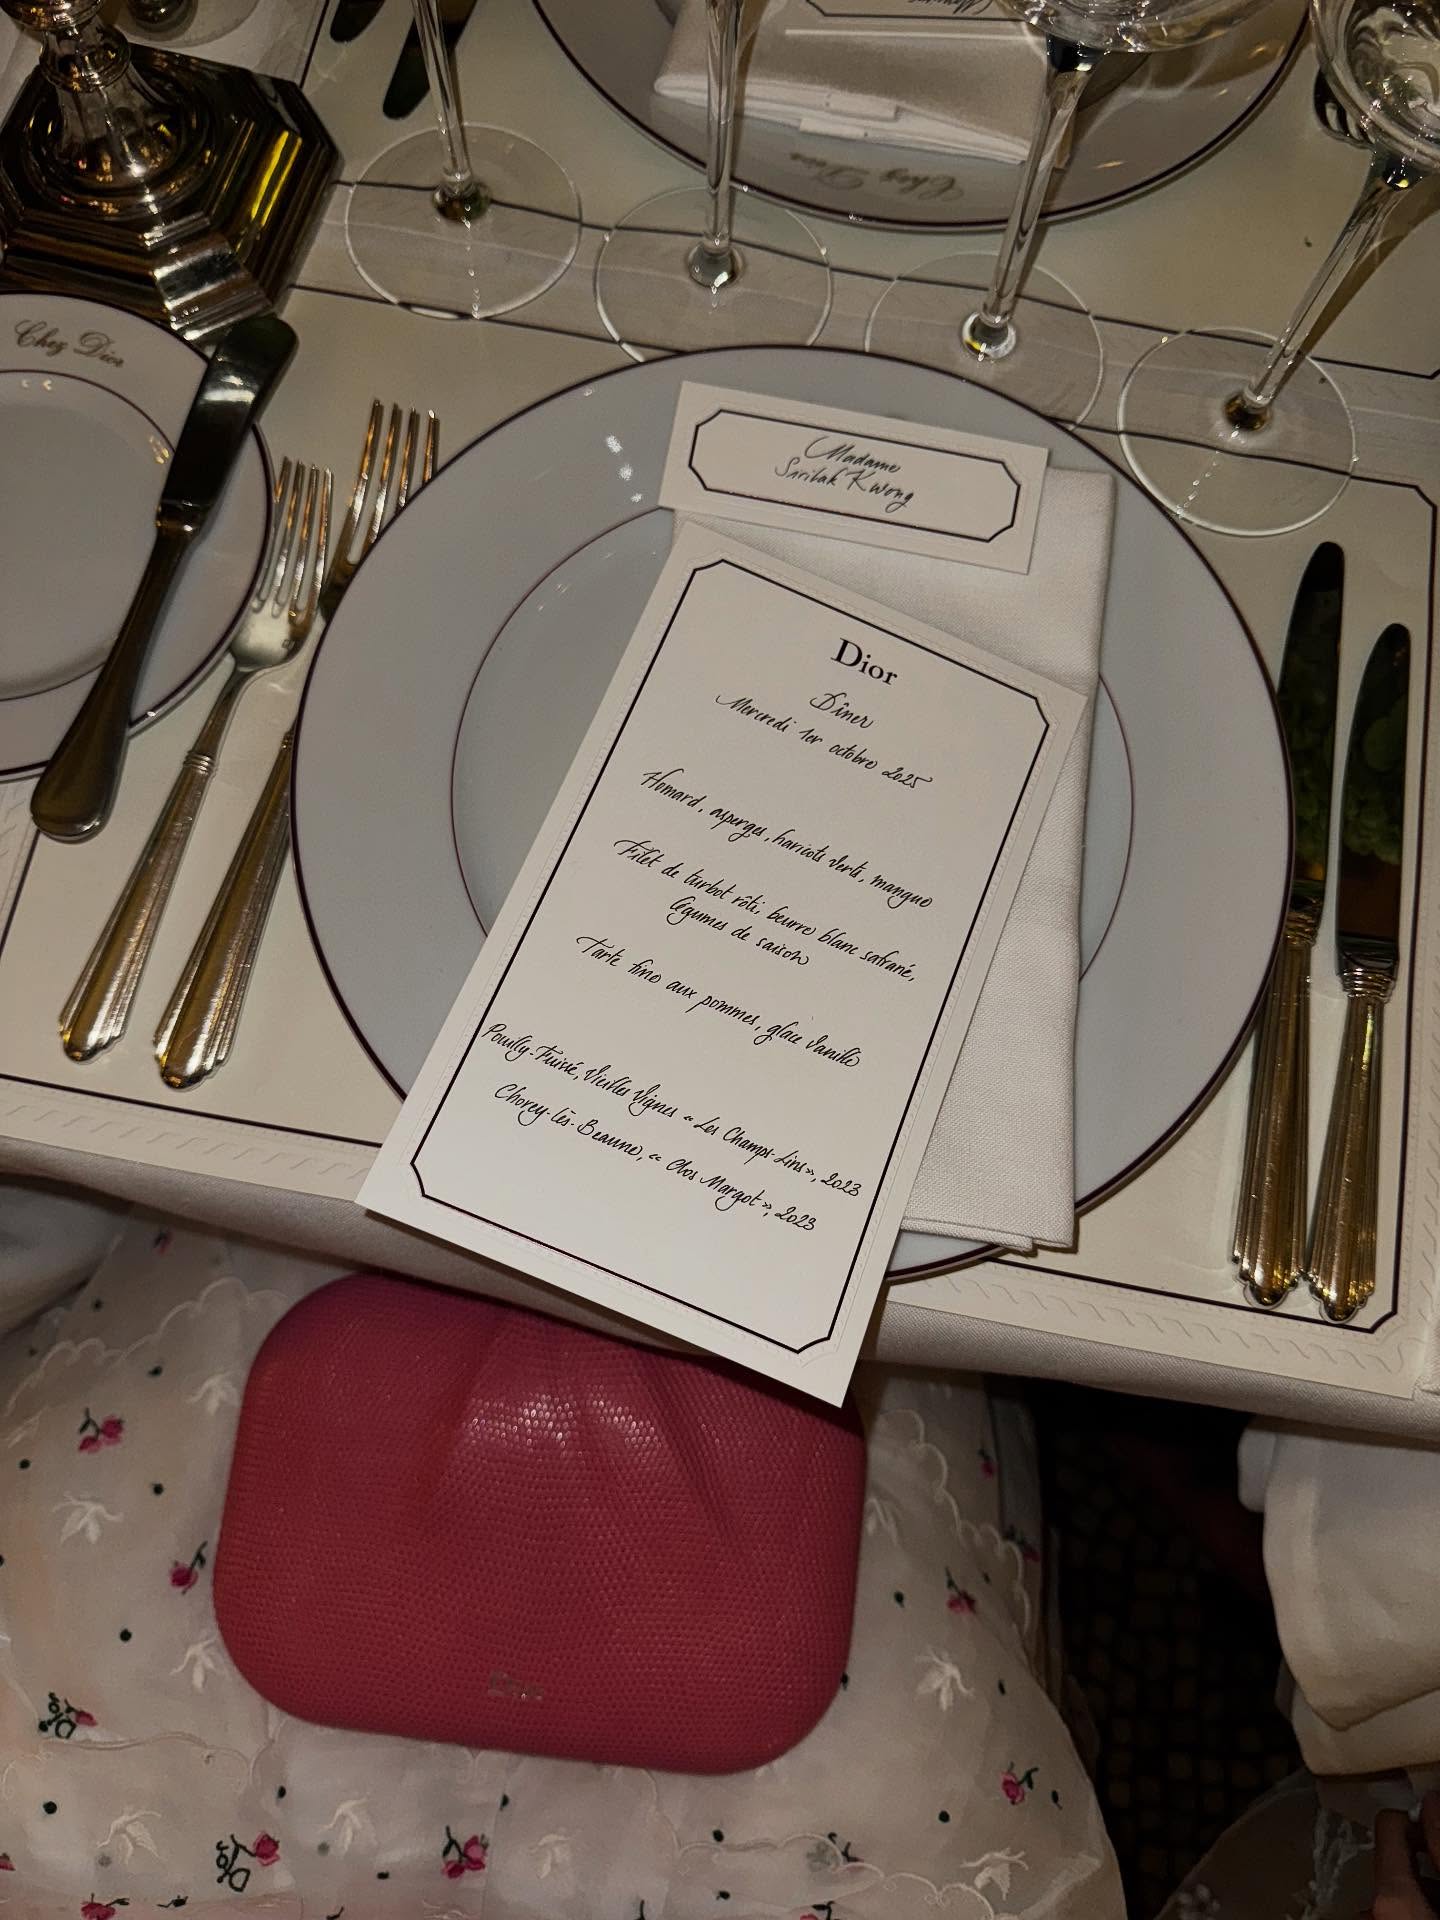 Chez Dior
Chez Dior
Madame
Sirilak Kwong
Dior
Dîner
Mercredi 1er octobre 2025
Homard, asperges, haricots verts, mangue
Filet de turbot rôti, beurre blanc safrané,
légumes de saison
Tarte fine aux pommes, glace vanille
Pouilly-Fuissé, Vieilles Vignes « Les Champs Lins », 2023
Chorey-lès-Beaune, « Clos Margot », 2023
Dior